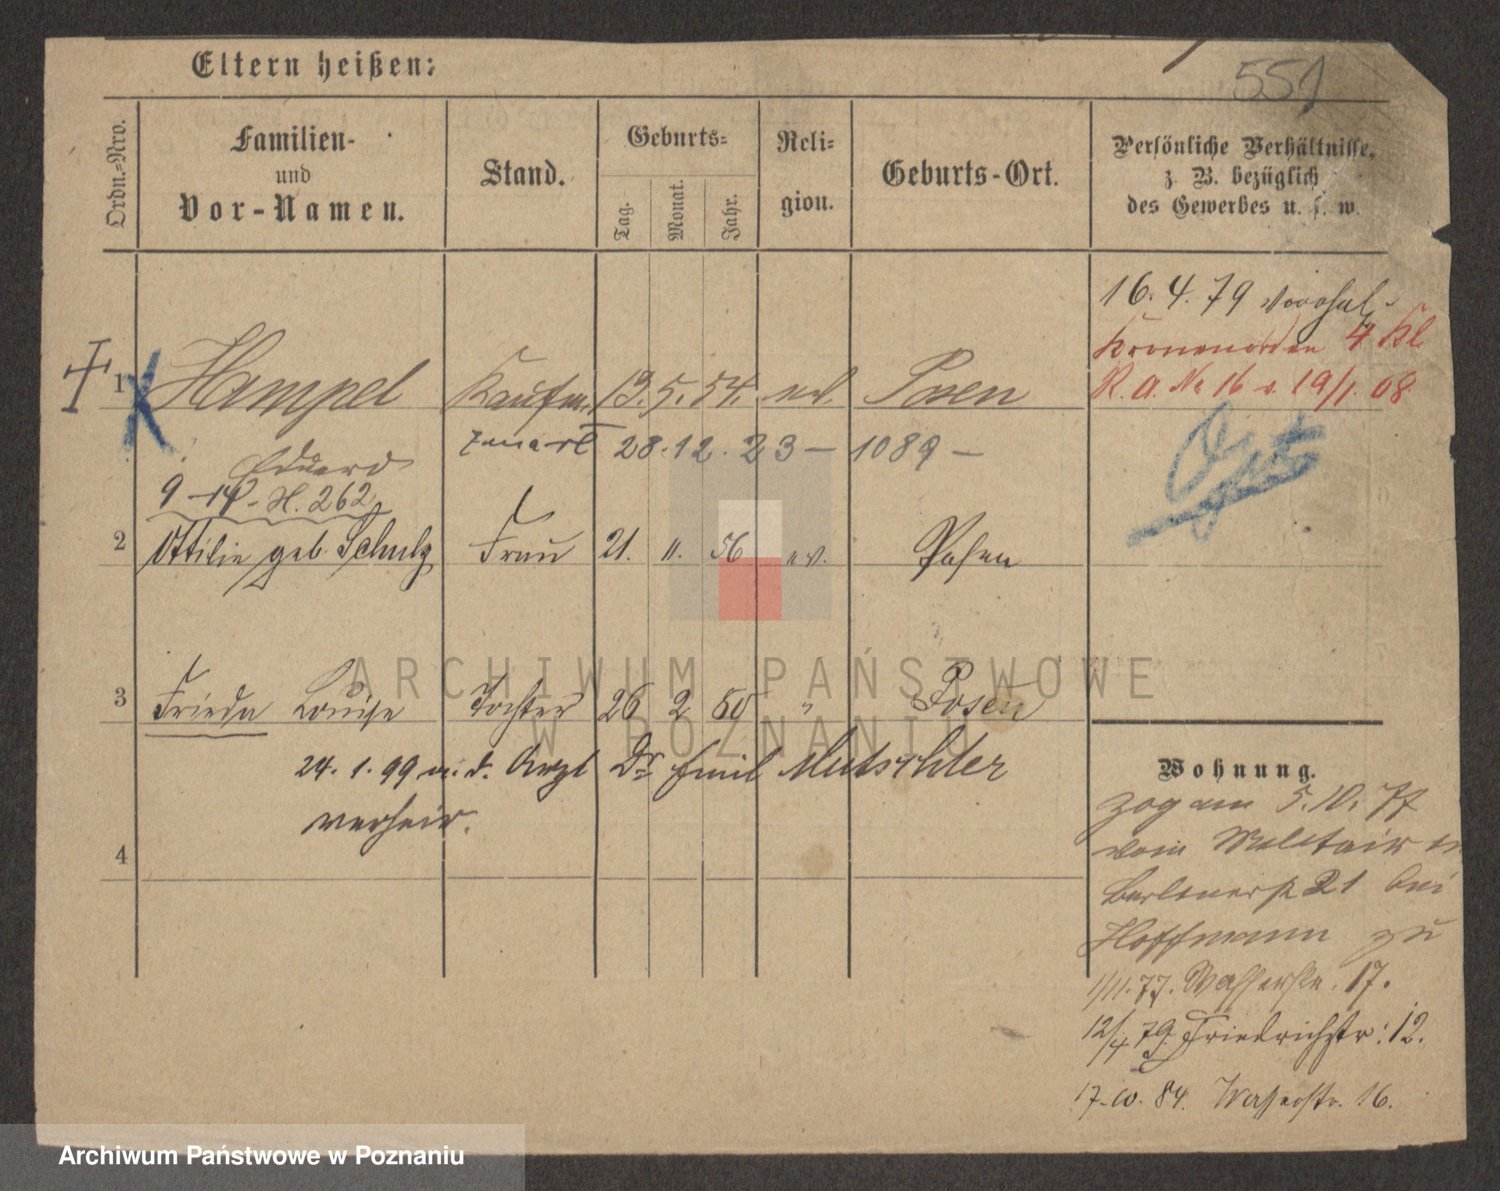 Eltern heißen:
551
Ordn.=Nro.
Familien-
und
Vor-Namen.
Stand.
Geburts=
Tag.
Monat.
Jahr.
Reli=
gion.
Geburts-Ort.
Persönliche Verhältnisse,
z. B. bezüglich
des Gewerbes u. s. w.
16. 4. 79
Kronenorden 4 Kl
R. A. No 16 v. 19/1. 08
1 Hampel Kaufm. 13. 5. 54. ev. Posen
28. 12. 23 – 1089 –
Eduard
9 – 14 – H. 262
2 Ottilie geb. Schulz Frau 21. 11. 56 ev. Posen
3 Frieda Louise Tochter 26 2 80 " Posen
24. 1. 99 m. d. Arzt Dr Emil Mutschler
verheir.
4
Wohnung.
zog am 5. 10. 77
vom Militair in
Berlinerstr 21 bei
Hoffmann zu
1/11. 77. Wasserstr. 17.
12/4 79. Friedrichstr: 12.
17. 10. 84. Wasserstr. 16.
ARCHIWUM PAŃSTWOWE
W POZNANIU
Archiwum Państwowe w Poznaniu